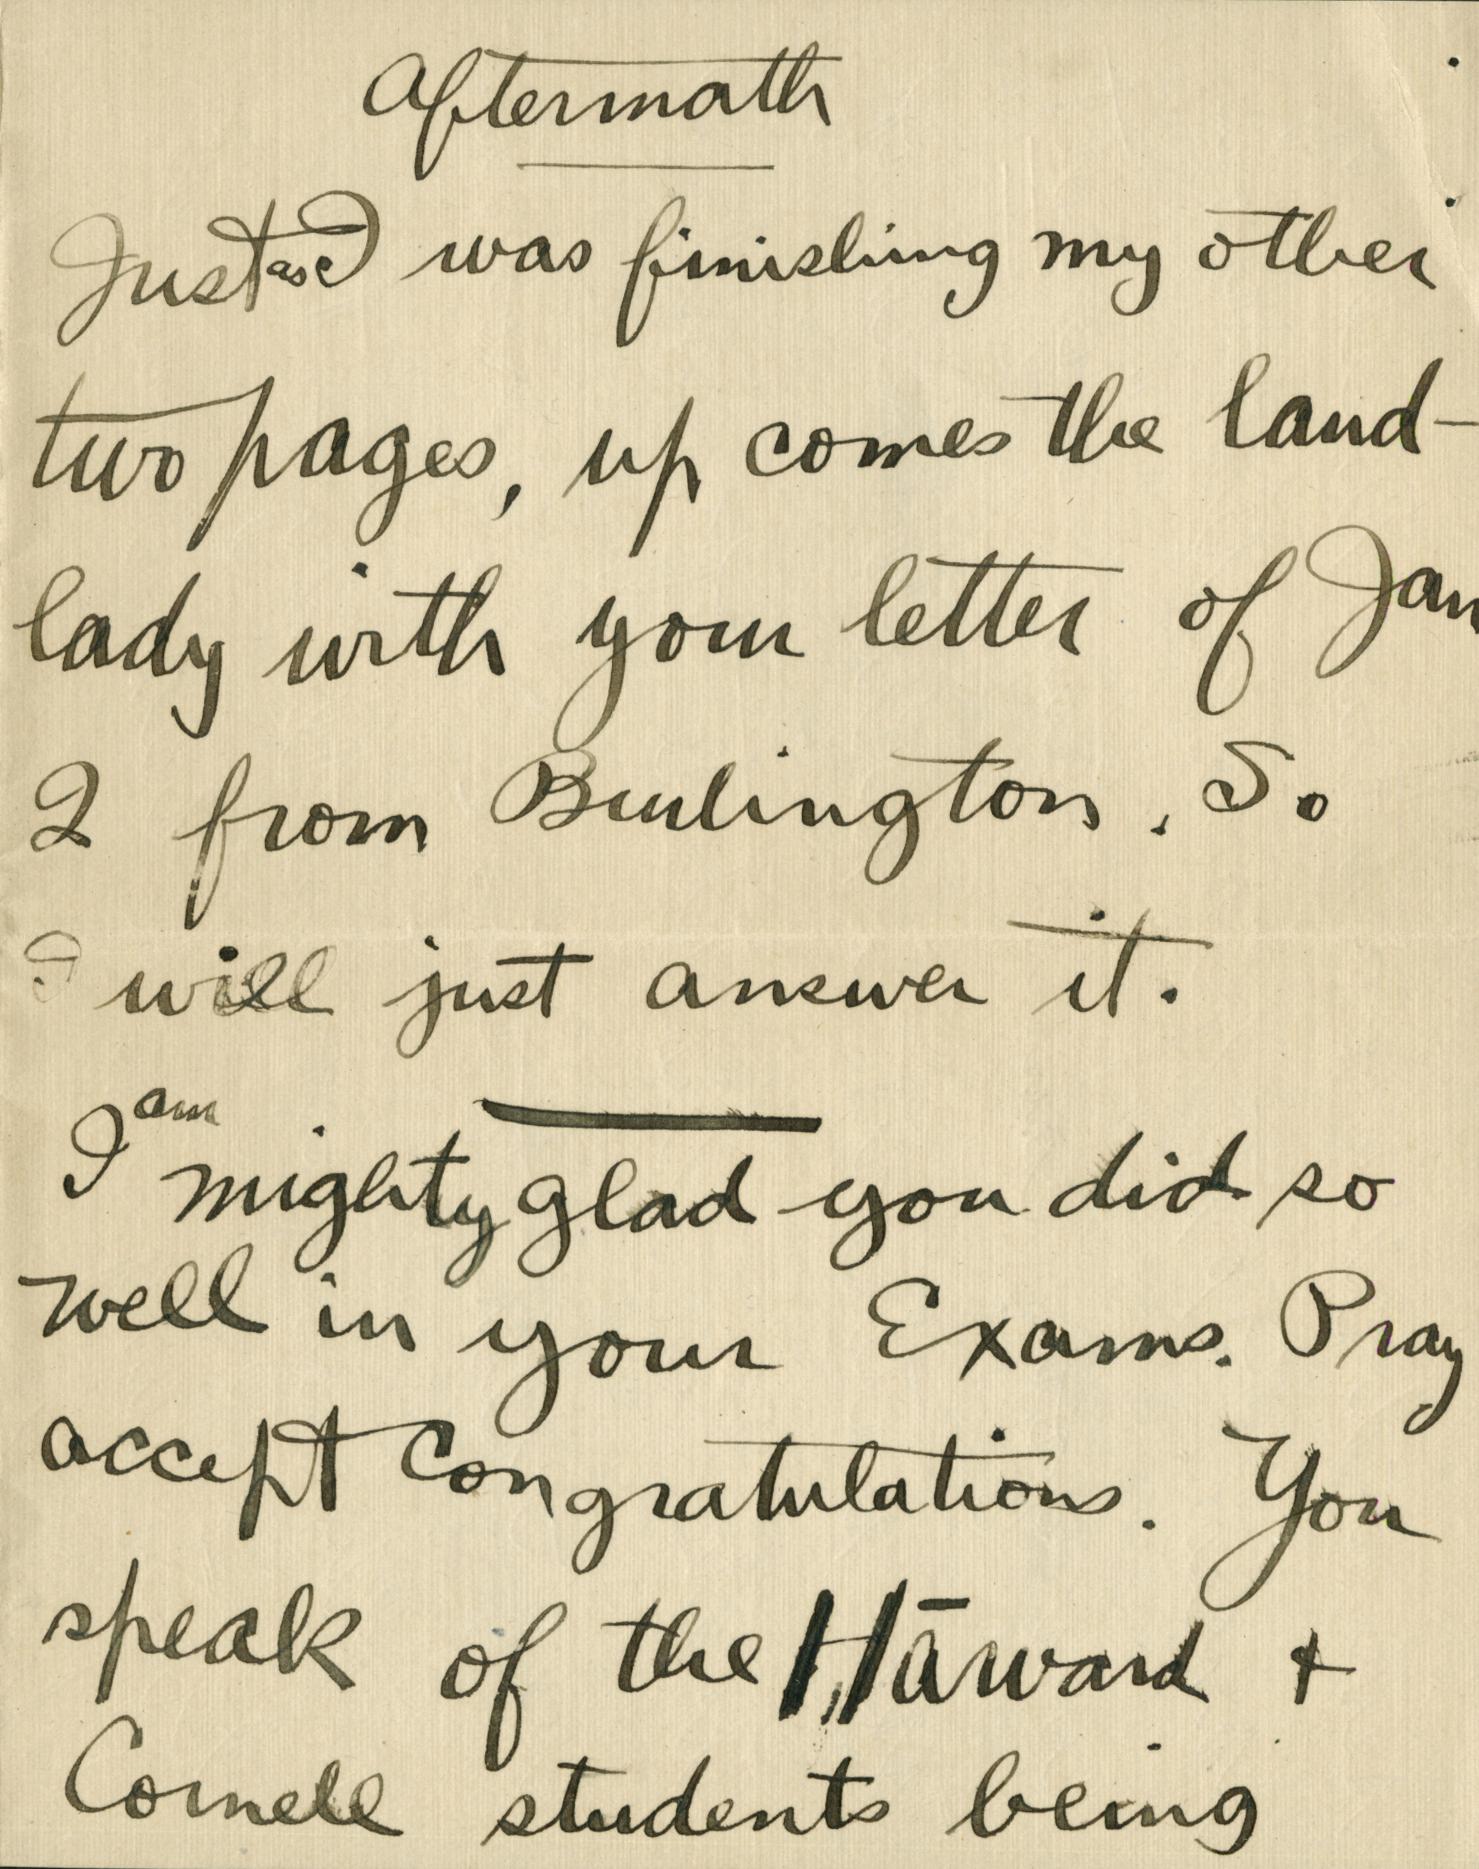 Aftermath
Just as I was finishing my other
two pages, up comes the land-
lady with your letter of Jan
2 from Burlington. So
I will just answer it.
I am mighty glad you did so
well in your Exams. Pray
accept Congratulations. You
speak of the Hārvard +
Cornell students being